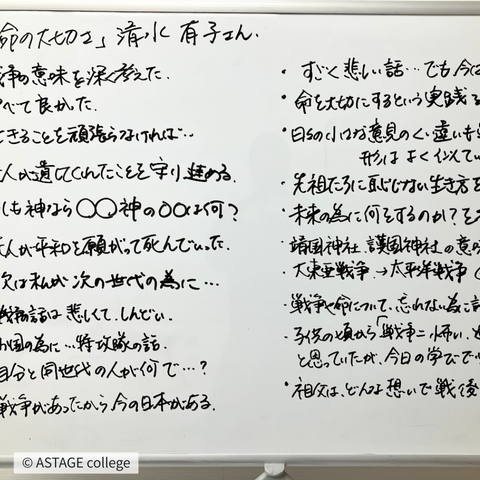 命の大切さ」清水 有子さん.
戦争の意味を深く考えた.
べて良かった.
できることを頑張らなければ…
人が遺してくれたことを守り進める.
も神なら〇〇神の〇〇は何?
人が平和を願がって死んでいった.
次は私が次の世代の為に…
戦争の話は悲しくて、しんどい.
お国の為に…特攻隊の話.
自分と同世代の人が何で…?
戦争があったから今の日本がある.
・すごく悲しい話…でも今は
・命を大切にするという実践
・自分の小さな意見のくい違い
形は よく似てい
・先祖たちに恥じない生き方を
・未来の為に何をするのか?
・靖国神社 護国神社の意
・大東亜戦争→太平洋戦争(
・戦争や命について、忘れない為に
・子供の頃から「戦争=怖い、
と思っていたが、今日の学びで
・祖父は、どんな想いで戦後
© ASTAGE college